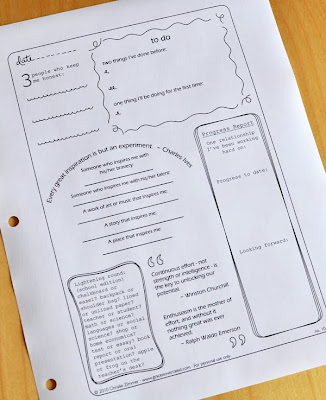 date
to do
two things I've done before:
1.
2.
one thing I'll be doing for the first time:
1.
3 people who keep
me honest:
Every great inspiration is but an experiment. ~ Charles Ives
Someone who inspires me with
his/her bravery:
Someone who inspires me with his/her talent:
A work of art or music that inspires me:
A story that inspires me:
A place that inspires me:
Progress Report
One relationship
I've been working
hard on:
Progress to date:
Looking forward:
Lightening round:
(school edition)
chalkboard or
easel? backpack or
shoulder bag? lined
or unlined paper?
teacher or student?
math or science?
languages or social
science? shop or
home economics?
test or essay? book
report or oral
presentation? apple
or frog on the
teacher's desk?
Continuous effort - not
strength or intelligence - is
the key to unlocking our
potential.
~ Winston Churchill
Enthusiasm is the mother of
effort, and without it
nothing great was ever
achieved.
~ Ralph Waldo Emerson
© 2010 Christie Zimmer
For personal use only